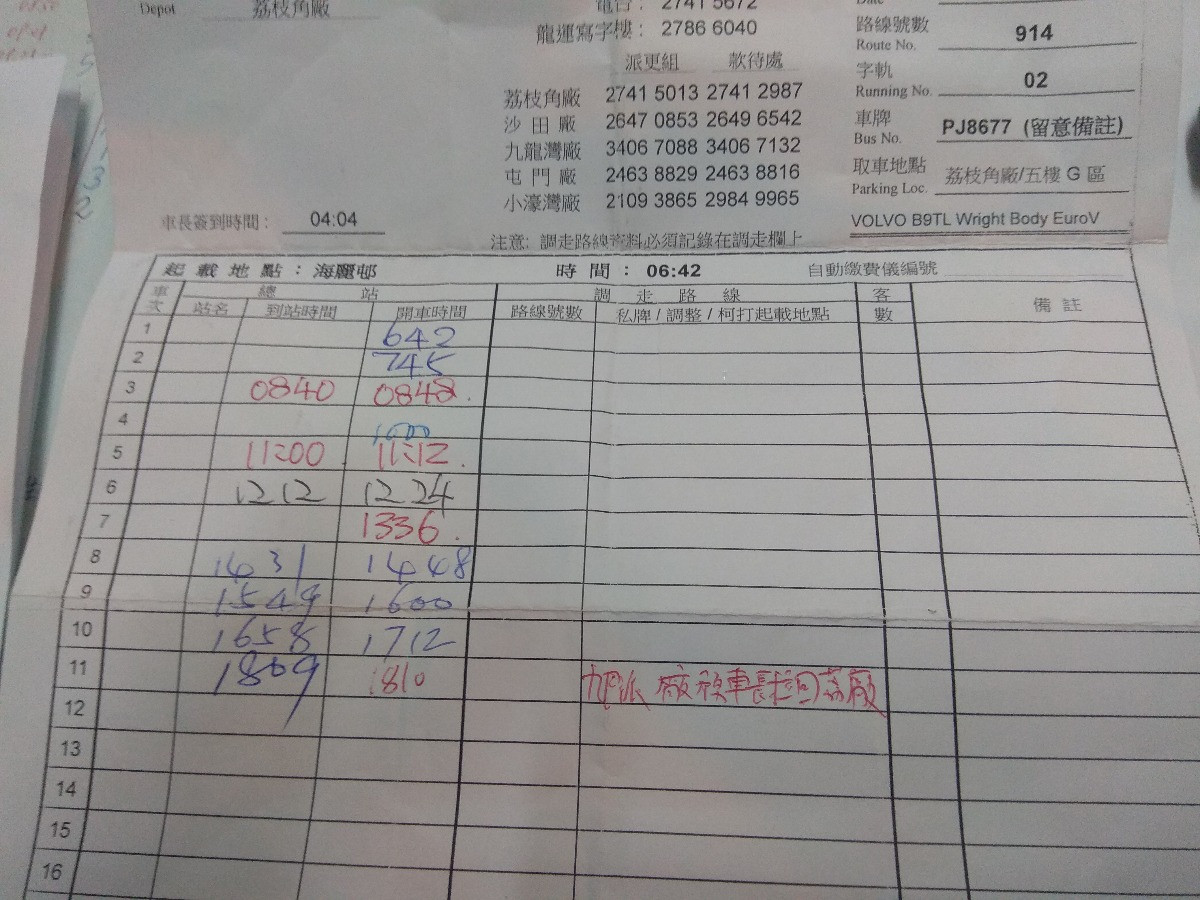 Depot 荔枝角廠
電台: 2741 5672
龍運寫字樓: 2786 6040
派更組 款待處
荔枝角廠 2741 5013 2741 2987
沙田廠 2647 0853 2649 6542
九龍灣廠 3406 7088 3406 7132
屯門廠 2463 8829 2463 8816
小濠灣廠 2109 3865 2984 9965
Date
路線號數 914
Route No.
字軌 02
Running No.
車牌 PJ8677 (留意備註)
Bus No.
取車地點 荔枝角廠/五樓 G 區
Parking Loc.
VOLVO B9TL Wright Body EuroV
車長簽到時間: 04:04
注意: 調走路線資料必須記錄在調走欄上
起載地點:海麗邨 時間: 06:42 自動繳費儀編號
車次 總站 調走路線 客數 備註
站名 到站時間 開車時間 路線號數 私牌/調整/柯打起載地點
1 642
2 745
3 0840 0848.
4 1000
5 11:00 11:12.
6 1212 1224
7 1336.
8 1431 1448
9 1549 1600
10 1658 1712
11 1809 1810
12
13
14
15
16